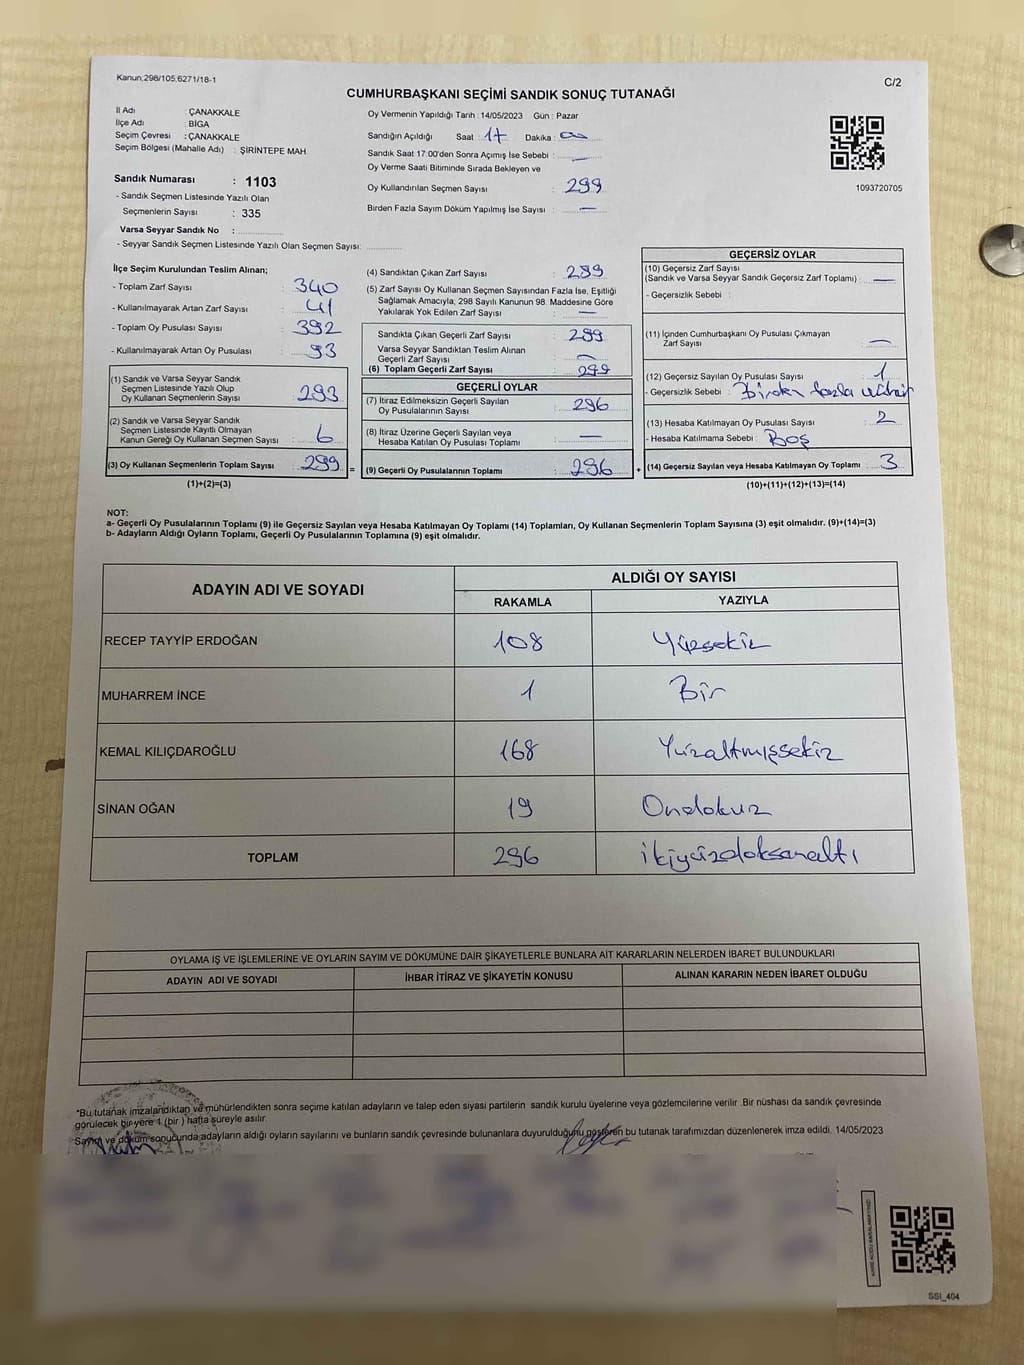 Kanun,298/105,6271/18-1
C/2
CUMHURBAŞKANI SEÇİMİ SANDIK SONUÇ TUTANAĞI
İl Adı : ÇANAKKALE
İlçe Adı : BİGA
Seçim Çevresi : ÇANAKKALE
Seçim Bölgesi (Mahalle Adı) : ŞİRİNTEPE MAH
Oy Vermenin Yapıldığı Tarih : 14/05/2023 Gün : Pazar
Sandığın Açıldığı Saat : 17 Dakika : 00
Sandık Saat 17:00'den Sonra Açımış İse Sebebi : —
Oy Verme Saati Bitiminde Sırada Bekleyen ve
Oy Kullandırılan Seçmen Sayısı : 299
Birden Fazla Sayım Döküm Yapılmış İse Sayısı : —
1093720705
Sandık Numarası : 1103
- Sandık Seçmen Listesinde Yazılı Olan
Seçmenlerin Sayısı : 335
Varsa Seyyar Sandık No :
- Seyyar Sandık Seçmen Listesinde Yazılı Olan Seçmen Sayısı:
İlçe Seçim Kurulundan Teslim Alınan;
- Toplam Zarf Sayısı : 340
- Kullanılmayarak Artan Zarf Sayısı : 41
- Toplam Oy Pusulası Sayısı : 392
- Kullanılmayarak Artan Oy Pusulası : 93
(1) Sandık ve Varsa Seyyar Sandık
Seçmen Listesinde Yazılı Olup
Oy Kullanan Seçmenlerin Sayısı : 293
(2) Sandık ve Varsa Seyyar Sandık
Seçmen Listesinde Kayıtlı Olmayan
Kanun Gereği Oy Kullanan Seçmen Sayısı : 6
(3) Oy Kullanan Seçmenlerin Toplam Sayısı : 299 =
(1)+(2)=(3)
(4) Sandıktan Çıkan Zarf Sayısı : 299
(5) Zarf Sayısı Oy Kullanan Seçmen Sayısından Fazla İse, Eşitliği
Sağlamak Amacıyla, 298 Sayılı Kanunun 98. Maddesine Göre
Yakılarak Yok Edilen Zarf Sayısı : —
Sandıkta Çıkan Geçerli Zarf Sayısı : 299
Varsa Seyyar Sandıktan Teslim Alınan
Geçerli Zarf Sayısı : —
(6) Toplam Geçerli Zarf Sayısı : 299
GEÇERLİ OYLAR
(7) İtiraz Edilmeksizin Geçerli Sayılan
Oy Pusulalarının Sayısı : 296
(8) İtiraz Üzerine Geçerli Sayılan veya
Hesaba Katılan Oy Pusulası Toplamı : —
(9) Geçerli Oy Pusulalarının Toplamı : 296 +
GEÇERSİZ OYLAR
(10) Geçersiz Zarf Sayısı
(Sandık ve Varsa Seyyar Sandık Geçersiz Zarf Toplamı) : —
- Geçersizlik Sebebi :
(11) İçinden Cumhurbaşkanı Oy Pusulası Çıkmayan
Zarf Sayısı : —
(12) Geçersiz Sayılan Oy Pusulası Sayısı : 1
- Geçersizlik Sebebi : Birden fazla mühür
(13) Hesaba Katılmayan Oy Pusulası Sayısı : 2
- Hesaba Katılmama Sebebi : Boş
(14) Geçersiz Sayılan veya Hesaba Katılmayan Oy Toplamı : 3
(10)+(11)+(12)+(13)=(14)
NOT:
a- Geçerli Oy Pusulalarının Toplamı (9) ile Geçersiz Sayılan veya Hesaba Katılmayan Oy Toplamı (14) Toplamları, Oy Kullanan Seçmenlerin Toplam Sayısına (3) eşit olmalıdır. (9)+(14)=(3)
b- Adayların Aldığı Oyların Toplamı, Geçerli Oy Pusulalarının Toplamına (9) eşit olmalıdır.
ADAYIN ADI VE SOYADI
ALDIĞI OY SAYISI
RAKAMLA YAZIYLA
RECEP TAYYİP ERDOĞAN 108 Yüzsekiz
MUHARREM İNCE 1 Bir
KEMAL KILIÇDAROĞLU 168 Yüzaltmışsekiz
SİNAN OĞAN 19 Ondokuz
TOPLAM 296 İkiyüzdoksanaltı
OYLAMA İŞ VE İŞLEMLERİNE VE OYLARIN SAYIM VE DÖKÜMÜNE DAİR ŞİKAYETLERLE BUNLARA AİT KARARLARIN NELERDEN İBARET BULUNDUKLARI
ADAYIN ADI VE SOYADI İHBAR İTİRAZ VE ŞİKAYETİN KONUSU ALINAN KARARIN NEDEN İBARET OLDUĞU
*Bu tutanak imzalandıktan ve mühürlendikten sonra seçime katılan adayların ve talep eden siyasi partilerin sandık kurulu üyelerine veya gözlemcilerine verilir .Bir nüshası da sandık çevresinde
görülecek bir yere 1 (bir ) hafta süreyle asılır.
Sayım ve döküm sonucunda adayların aldığı oyların sayılarını ve bunların sandık çevresinde bulunanlara duyurulduğunu gösteren bu tutanak tarafımızdan düzenlenerek imza edildi. 14/05/2023
SSİ_404